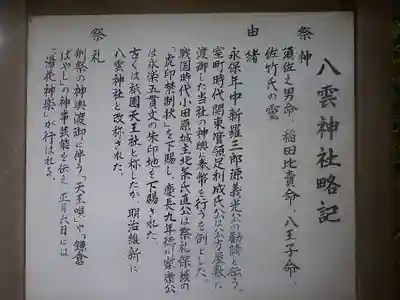 八雲神社略記
祭神
須佐之男命、稲田比賣命、八王子命、
佐竹氏の霊
由緒
永保年中新羅三郎源義光公の勧請と伝う。
室町時代関東管領足利成氏公は公方屋敷に
渡御した当社の神輿に奉幣を行うを例とした。
戦国時代小田原城主北条氏直公は祭礼保護の
「虎印禁制状」を下賜し、慶長九年徳川家康公
は永楽五貫文の朱印地を下賜された。
古くは祇園天王社と称したが明治維新に
八雲神社と改称された。
祭礼
例祭の神輿渡御に伴う「天王唄」や「鎌倉
ばやし」の神事芸能を伝え正月六日には
「湯花神楽」が行はれる。